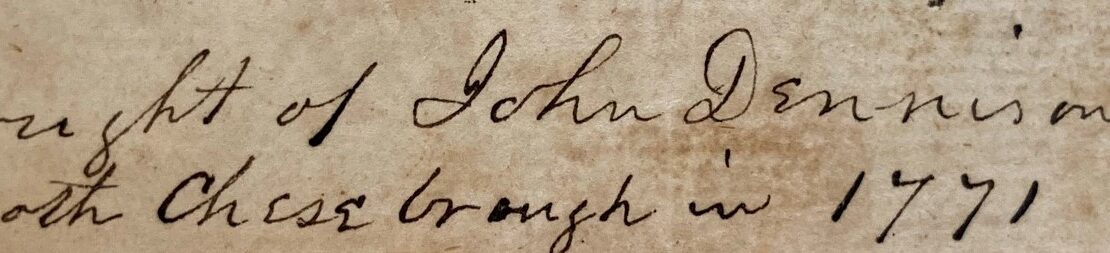 ught of John Dennison
oth Chesebrough in 1771